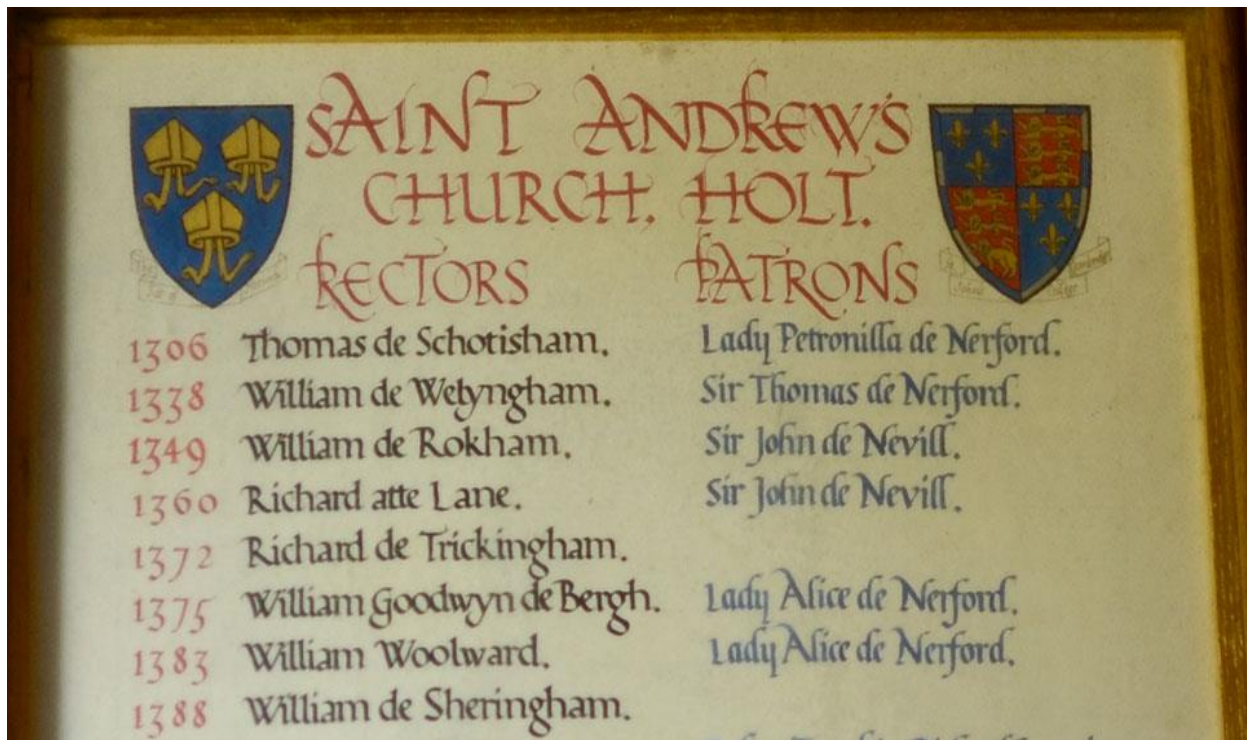 SAINT ANDREW'S
CHURCH. HOLT.
RECTORS PATRONS
1306 Thomas de Schotisham. Lady Petronilla de Nerford.
1338 William de Wetyngham. Sir Thomas de Nerford.
1349 William de Rokham. Sir John de Nevill.
1360 Richard atte Lane. Sir John de Nevill.
1372 Richard de Trickingham.
1375 William Goodwyn de Bergh. Lady Alice de Nerford.
1383 William Woolward. Lady Alice de Nerford.
1388 William de Sheringham.